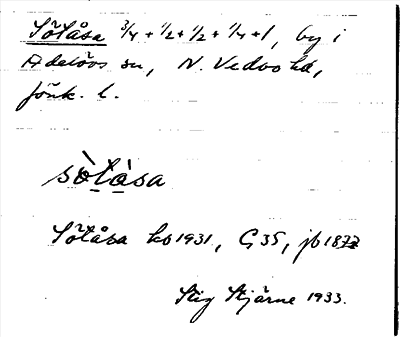 Sötåsa 3/4 + 1/2 + 1/2 + 1/4 + 1, by i
Adelövs sn, N. Vedbo hd,
Jönk. l.
sòtàsa
Sötåsa ko 1931, G 35, jb 1877
Stig Stjärne 1933.